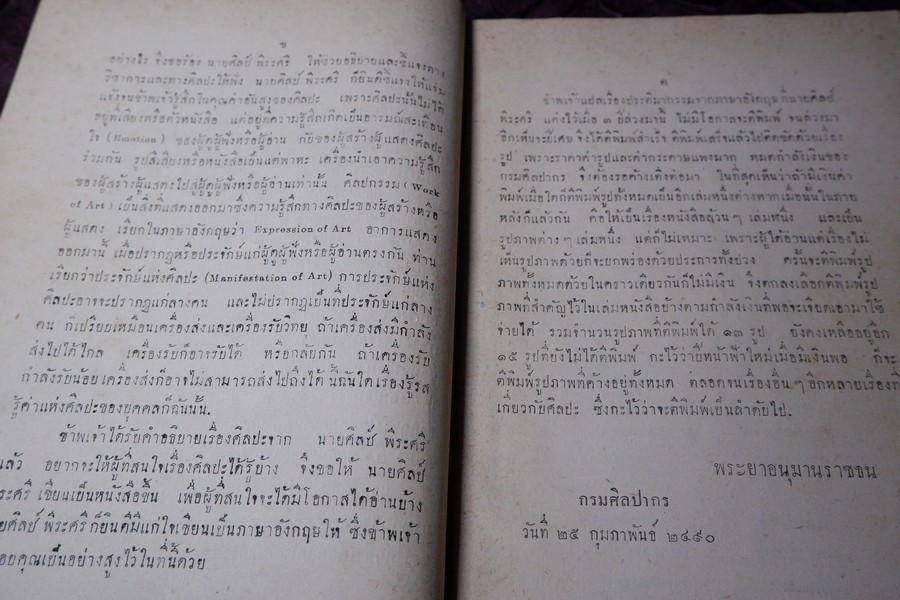 ข
อย่างไร จึงขอร้อง นายศิลป์ พิระศรี ให้ช่วยอธิบายและชี้แจงทาง
วิชาการและทางศิลปะให้ฟัง นายศิลป์ พิระศรี ก็ยินดีชี้แจงให้แจ่ม
แจ้งจนข้าพเจ้ารู้สึกในคุณค่าอันสูงของศิลปะ เพราะศิลปะนั้นไม่ได้
อยู่ที่เสียงหรือตัวหนังสือ แต่อยู่ที่ความรู้สึกเกิดเป็นอารมณ์สะเทือน
ใจ (Emotion) ของผู้ดูผู้ฟังหรือผู้อ่าน กับของผู้สร้างผู้แสดงศิลปะ
ร่วมกัน รูปสีเสียงหรือหนังสือเป็นแต่พาหะ เครื่องนำเอาความรู้สึก
ของผู้สร้างผู้แสดงไปสู่ผู้ดูผู้ฟังหรือผู้อ่านเท่านั้น ศิลปกรรม (Work
of Art) เป็นสิ่งที่แสดงออกมาซึ่งความรู้สึกทางศิลปะของผู้สร้างหรือ
ผู้แสดง เรียกในภาษาอังกฤษว่า Expression of Art อาการแสดง
ออกมานี้ เมื่อปรากฏหรือประจักษ์แก่ผู้ดูผู้ฟังหรือผู้อ่านตรงกัน ท่าน
เรียกว่าประจักษ์แห่งศิลปะ (Manifestation of Art) การประจักษ์แห่ง
ศิลปะอาจจะปรากฏแก่ลางคน และไม่ปรากฏเป็นที่ประจักษ์แก่ลาง
คน ก็เปรียบเหมือนเครื่องส่งและเครื่องรับวิทยุ ถ้าเครื่องส่งมีกำลัง
ส่งไปได้ไกล เครื่องรับก็อาจรับได้ หรือกลับกัน ถ้าเครื่องรับ
กำลังรับน้อย เครื่องส่งก็อาจไม่สามารถส่งไปถึงได้ นี่ฉันใด เรื่องรู้รส
รู้ค่าแห่งศิลปะของบุคคลก็ฉันนั้น.
ข้าพเจ้าได้รับคำอธิบายเรื่องศิลปะจาก นายศิลป์ พิระศรี
แล้ว อยากจะให้ผู้ที่สนใจเรื่องศิลปะได้รู้บ้าง จึงขอให้ นายศิลป์
พิระศรี เขียนเป็นหนังสือขึ้น เพื่อผู้ที่สนใจจะได้มีโอกาสได้อ่านบ้าง
นายศิลป์ พิระศรี ก็ยินดีมีแก่ใจเขียนเป็นภาษาอังกฤษให้ ซึ่งข้าพเจ้า
ขอบคุณเป็นอย่างสูงไว้ในที่นี้ด้วย
ค
ข้าพเจ้าแปลเรื่องประติมากรรมจากภาษาอังกฤษที่นายศิลป์
พิระศรี แต่งไว้เมื่อ ๓ ปีล่วงมานี้ ไม่มีโอกาสจะตีพิมพ์ จนล่วงมา
อีกเห็นจะปีเศษ จึงได้ตีพิมพ์สำเร็จ ตีพิมพ์เสร็จแล้วไปติดขัดด้วยเรื่อง
รูป เพราะราคาค่ารูปและค่ากระดาษแพงมาก หมดกำลังเงินของ
กรมศิลปากร จึ่งต้องรอค้างเติ่งต่อมา ในที่สุดเห็นว่าถ้ามีเงินค่า
พิมพ์เมื่อใดก็ตีพิมพ์รูปทั้งหมดเป็นอีกเล่มหนึ่งต่างหากเมื่อนั้นในภาย
หลังก็แล้วกัน คือให้เป็นเรื่องหนังสือล้วน ๆ เล่มหนึ่ง และเป็น
รูปภาพต่าง ๆ เล่มหนึ่ง แต่ก็ไม่เหมาะ เพราะผู้ได้อ่านแต่เรื่องไม่
เห็นรูปภาพด้วยก็จะยกพร่องด้วยประการทั้งปวง ครั้นจะตีพิมพ์รูป
ภาพทั้งหมดด้วยในคราวเดียวกันก็ไม่มีเงิน จึ่งตกลงเลือกตีพิมพ์รูป
ภาพที่สำคัญไว้ในเล่มหนังสือบ้างตามกำลังเงินที่พอจะเจียดเอามาใช้
จ่ายได้ รวมจำนวนรูปภาพที่ตีพิมพ์ได้ ๑๓ รูป ยังคงเหลืออยู่อีก
๑๕ รูปที่ยังไม่ได้ตีพิมพ์ กะไว้ว่าปีหน้าฟ้าใหม่เมื่อมีเงินพอ ก็จะ
ตีพิมพ์รูปภาพที่ค้างอยู่ทั้งหมด ตลอดจนเรื่องอื่น ๆ อีกหลายเรื่องที่
เกี่ยวกับศิลปะ ซึ่งกะไว้ว่าจะตีพิมพ์เป็นลำดับไป.
พระยาอนุมานราชธน
กรมศิลปากร
วันที่ ๒๕ กุมภาพันธ์ ๒๔๙๐